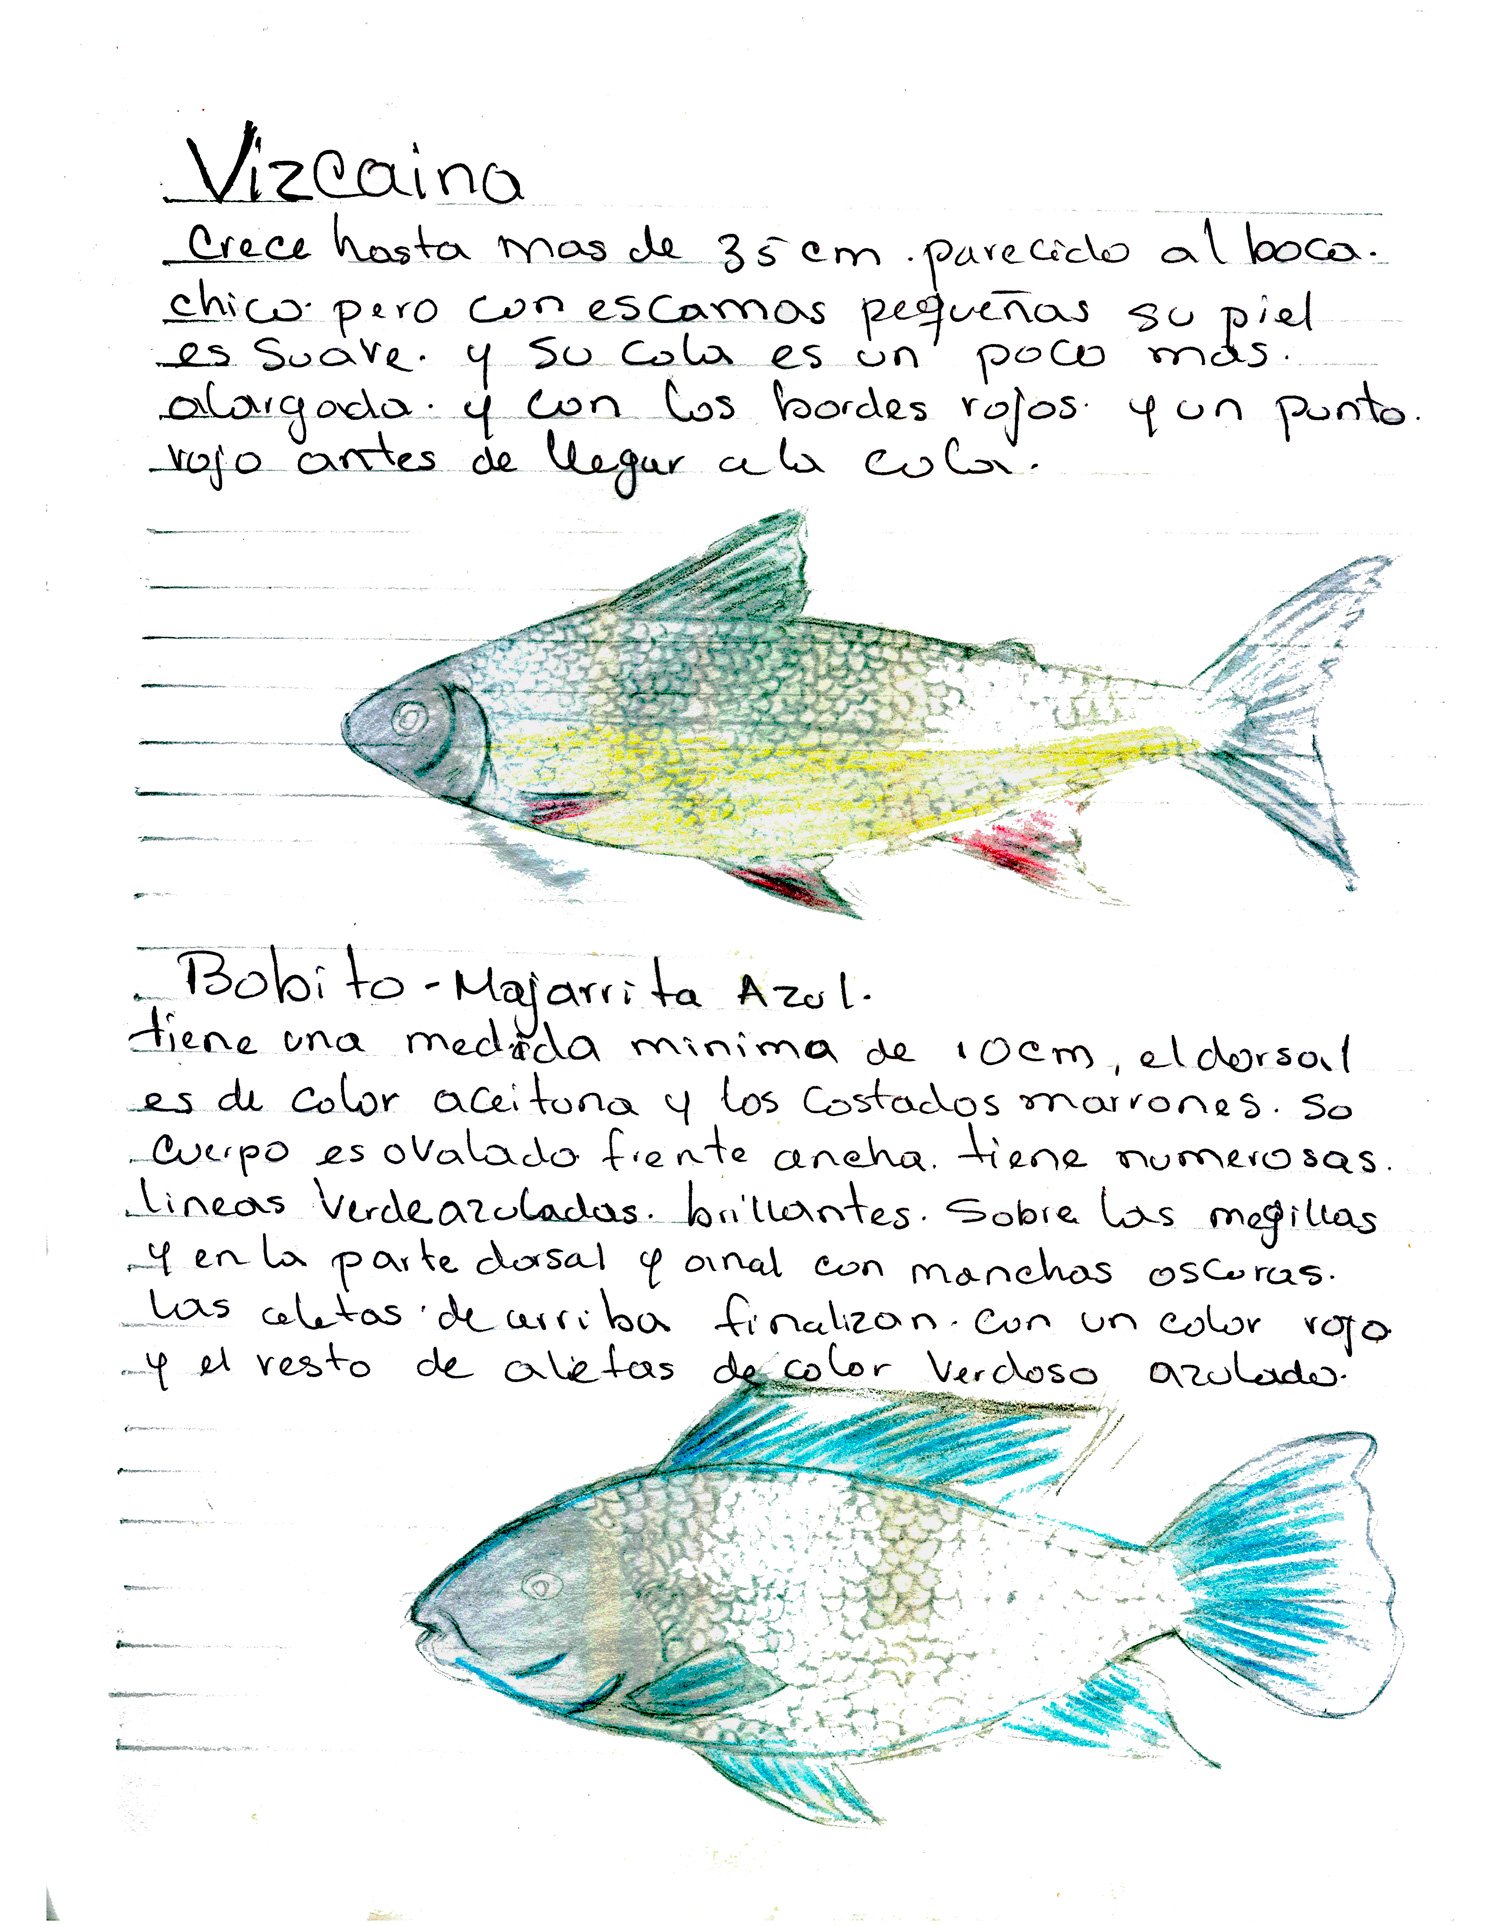 Vizcaina
Crece hasta mas de 35 cm. parecido al boca.
chico. pero con escamas pequeñas su piel
es suave. y su cola es un poco mas.
alargada. y con los bordes rojos. y un punto.
rojo antes de llegar a la cola.
Bobito - Majarrita Azul.
tiene una medida minima de 10cm, el dorsal
es de color aceituna y los costados marrones. so
cuerpo es ovalado frente ancha. tiene numerosas.
lineas verdeazuladas. brillantes. Sobre las megillas
y en la parte dorsal y anal con manchas oscuras.
las aletas de arriba finalizan. con un color rojo
y el resto de aletas de color verdoso azulado.